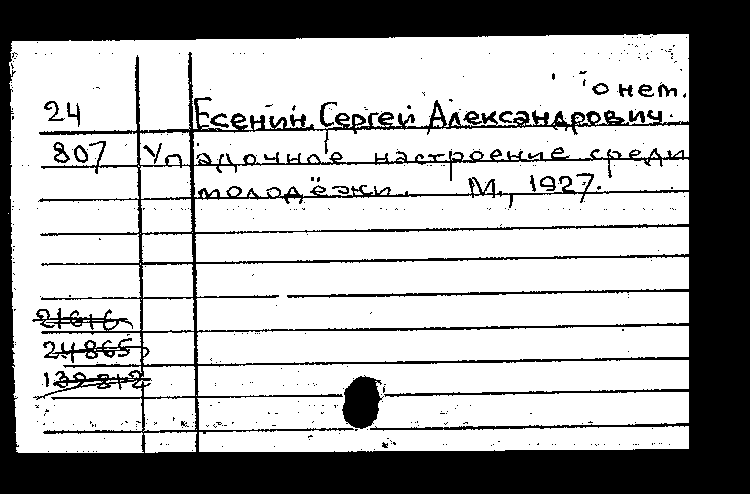 о нем.
24 Есенин, Сергей Александрович.
807 Упадочное настроение среди
молодёжи. М., 1927.
21616
24865
139812